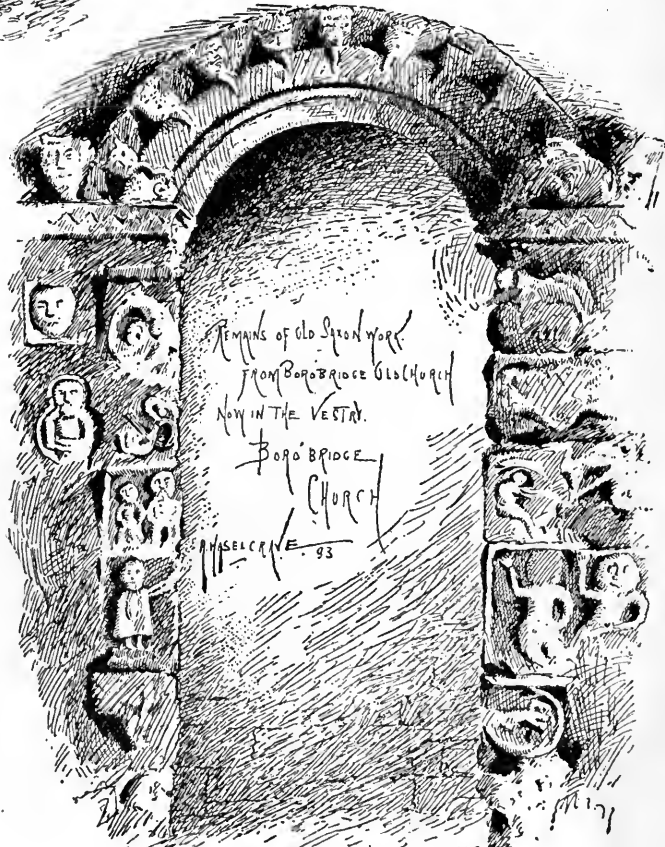 REMAINS OF OLD SAXON WORK
FROM BOROBRIDGE OLD CHURCH
NOW IN THE VESTRY.
BORO'BRIDGE
CHURCH
A. HASELGRAVE 93